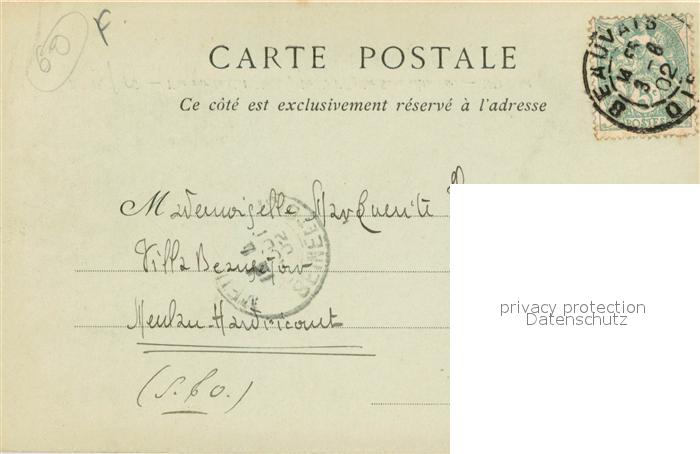 60 F
CARTE POSTALE
Ce côté est exclusivement réservé à l'adresse
BEAUVAIS
OISE
3 - 8
02
POSTES
Mademoiselle Marguerite
Villa Beauséjour
Meulan-Hardricourt
(S. & O.)
privacy protection
Datenschutz